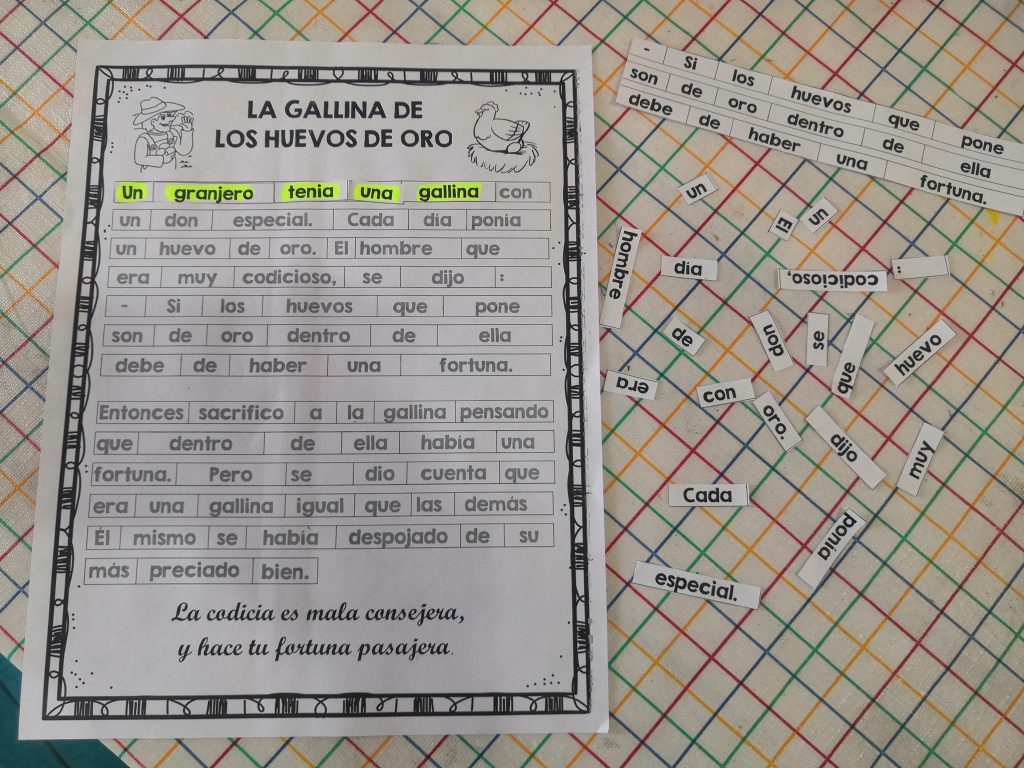 LA GALLINA DE
LOS HUEVOS DE ORO
Un granjero tenia una gallina con
un don especial. Cada día ponía
un huevo de oro. El hombre que
era muy codicioso, se dijo :
- Si los huevos que pone
son de oro dentro de ella
debe de haber una fortuna.
Entonces sacrifico a la gallina pensando
que dentro de ella había una
fortuna. Pero se dio cuenta que
era una gallina igual que las demás
Él mismo se había despojado de su
más preciado bien.
La codicia es mala consejera,
y hace tu fortuna pasajera.
- Si los huevos que pone
son de oro dentro de ella
debe de haber una fortuna.
un
un
El
hombre
día
codicioso,
:
de
don
se
que
huevo
era
con
oro.
dijo
muy
Cada
ponía
especial.